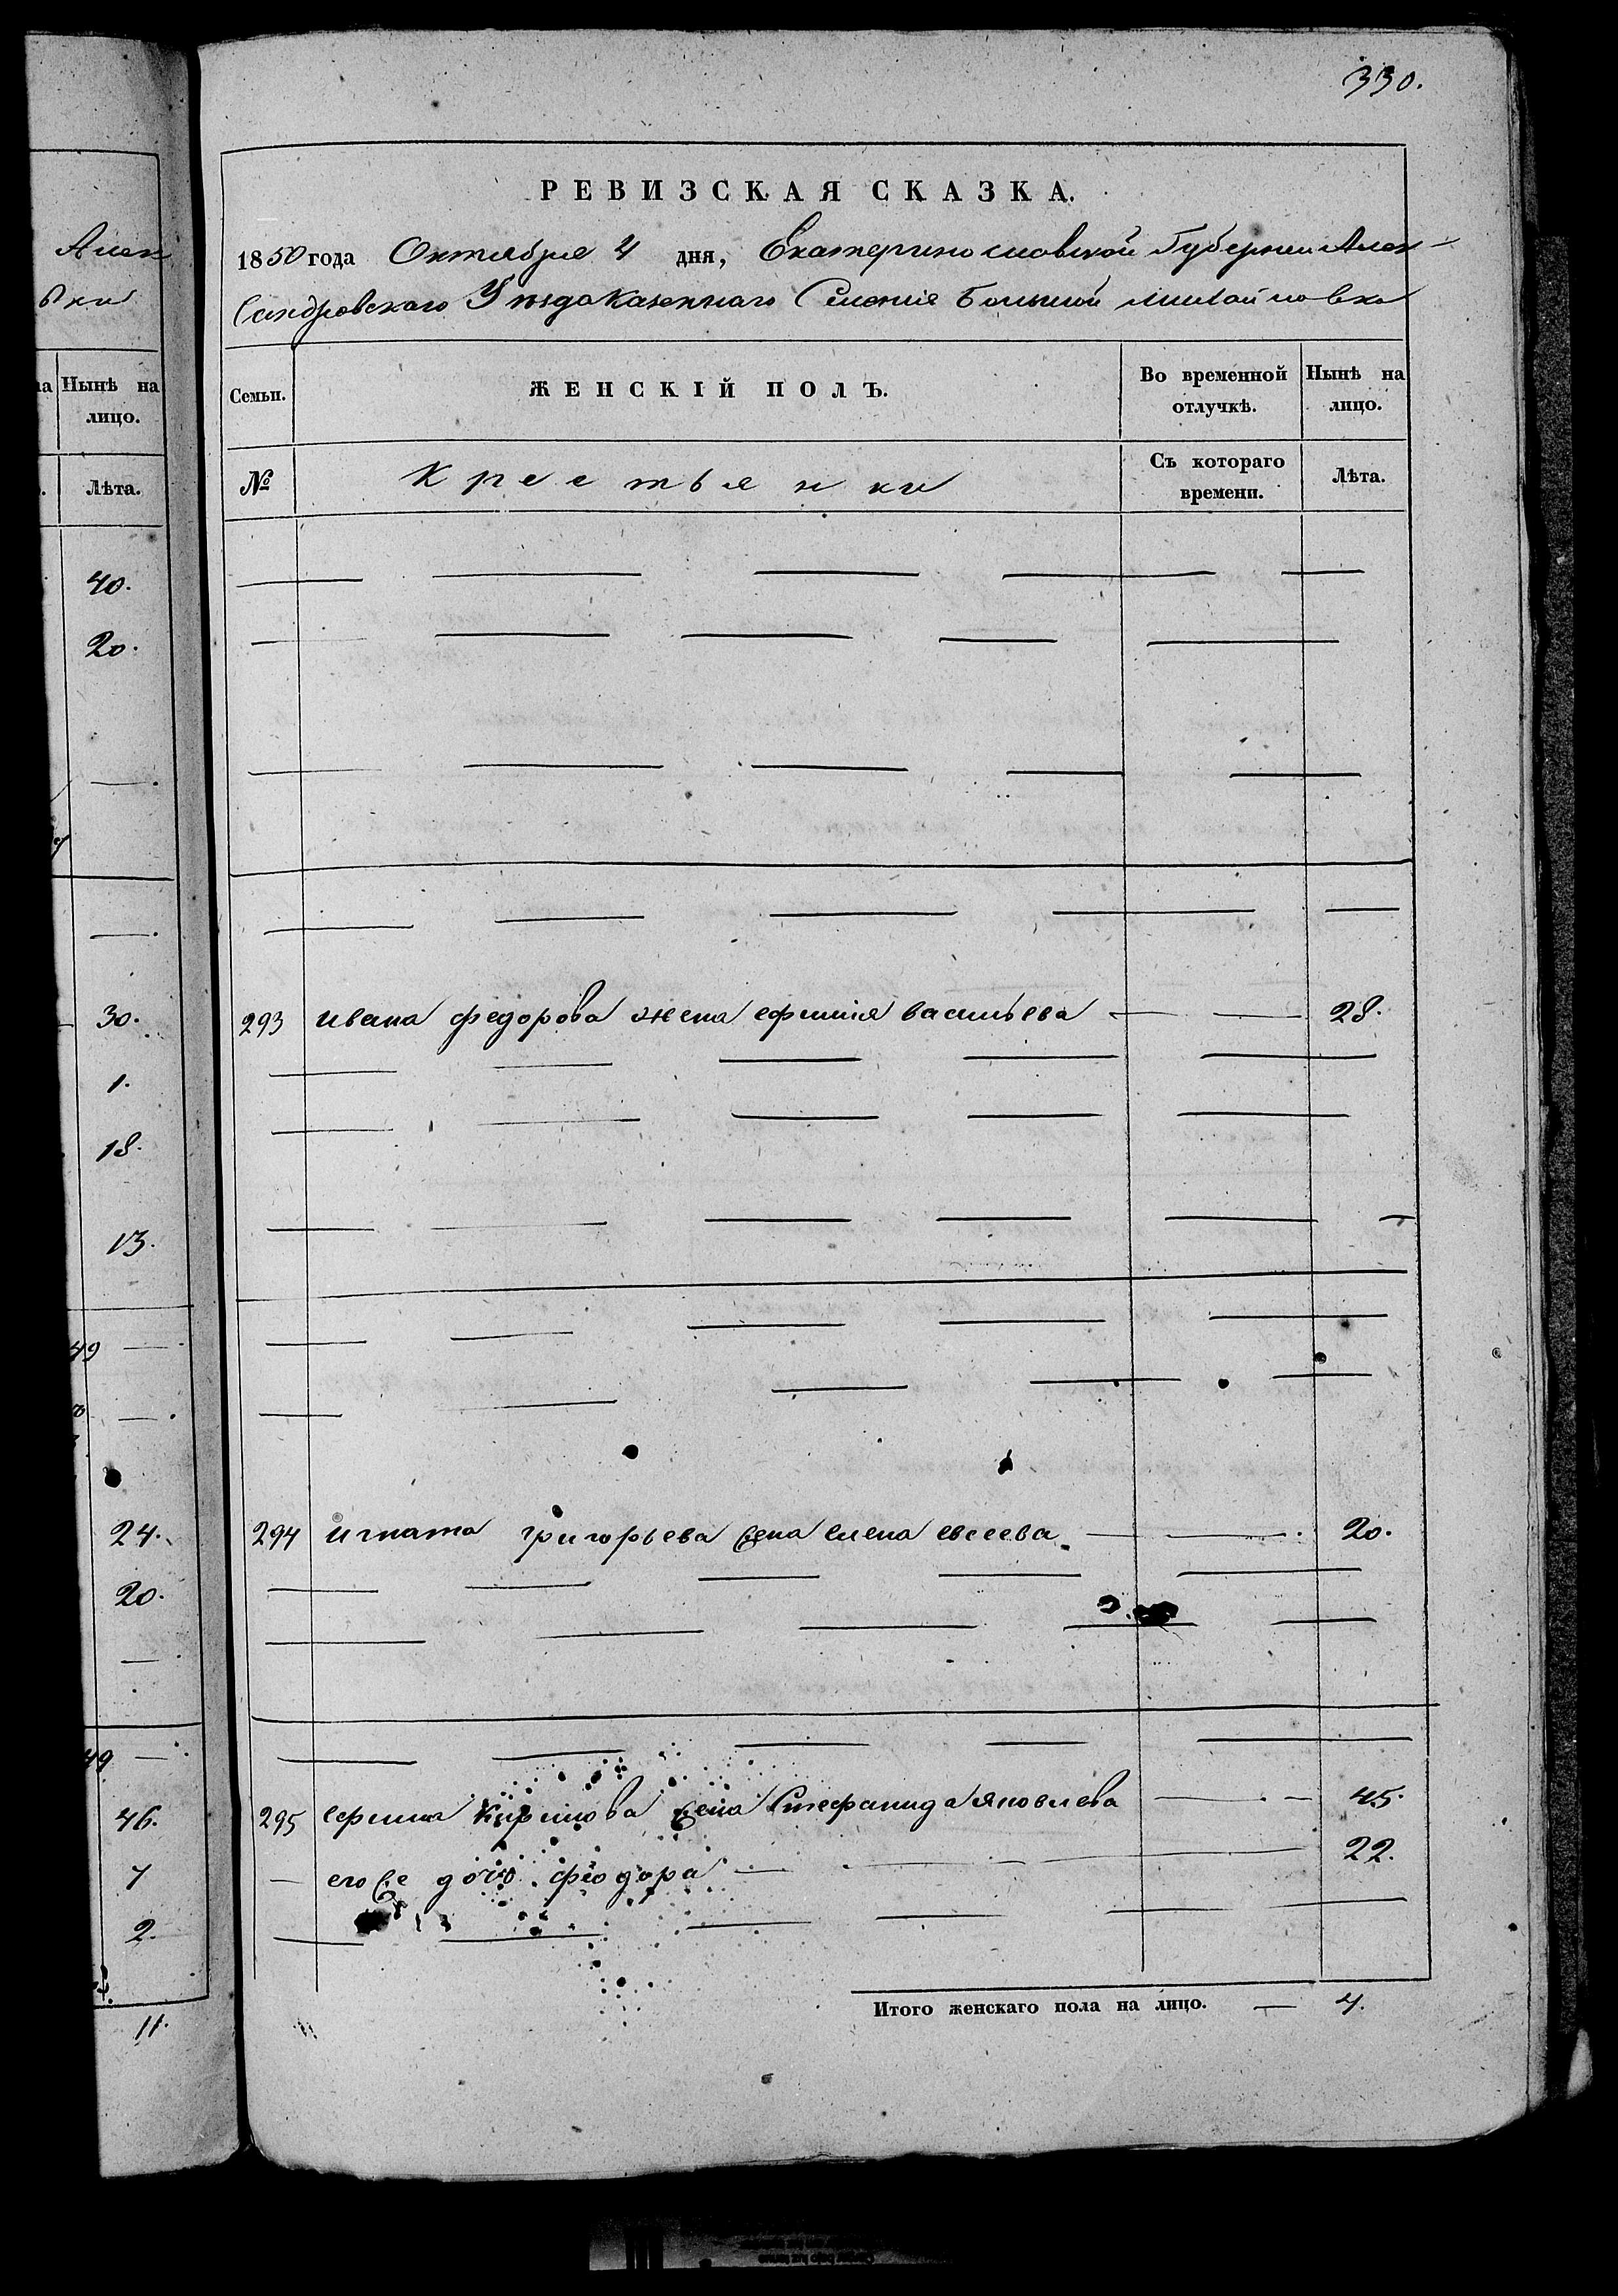 330.
РЕВИЗСКАЯ СКАЗКА.
1850 года Октября 4 дня, Екатеринославской Губернии Алек-
сандровского Уѣзда Казеннаго Селенія Большой Михайловки
Семьи. ЖЕНСКІЙ ПОЛЪ. Во временной отлучкѣ. Нынѣ на лицо.
№ Крестьянки Съ котораго времени. Лѣта.
293 ивана федорова жена ефимія васильева — — 28.
294 игната григорьева жена елена евсеева. — — 20.
295 ефима Кирилова жена Стефанида яковлева — — 45.
— его же дочь феодора — — 22.
Итого женскаго пола на лицо. — 4.
Алек
вки
на Нынѣ на
лицо.
Лѣта.
40.
20.
—.
—.
30.
1.
18.
13.
49 —
—.
24.
20.
—.
49 —
46.
7
2.
11.